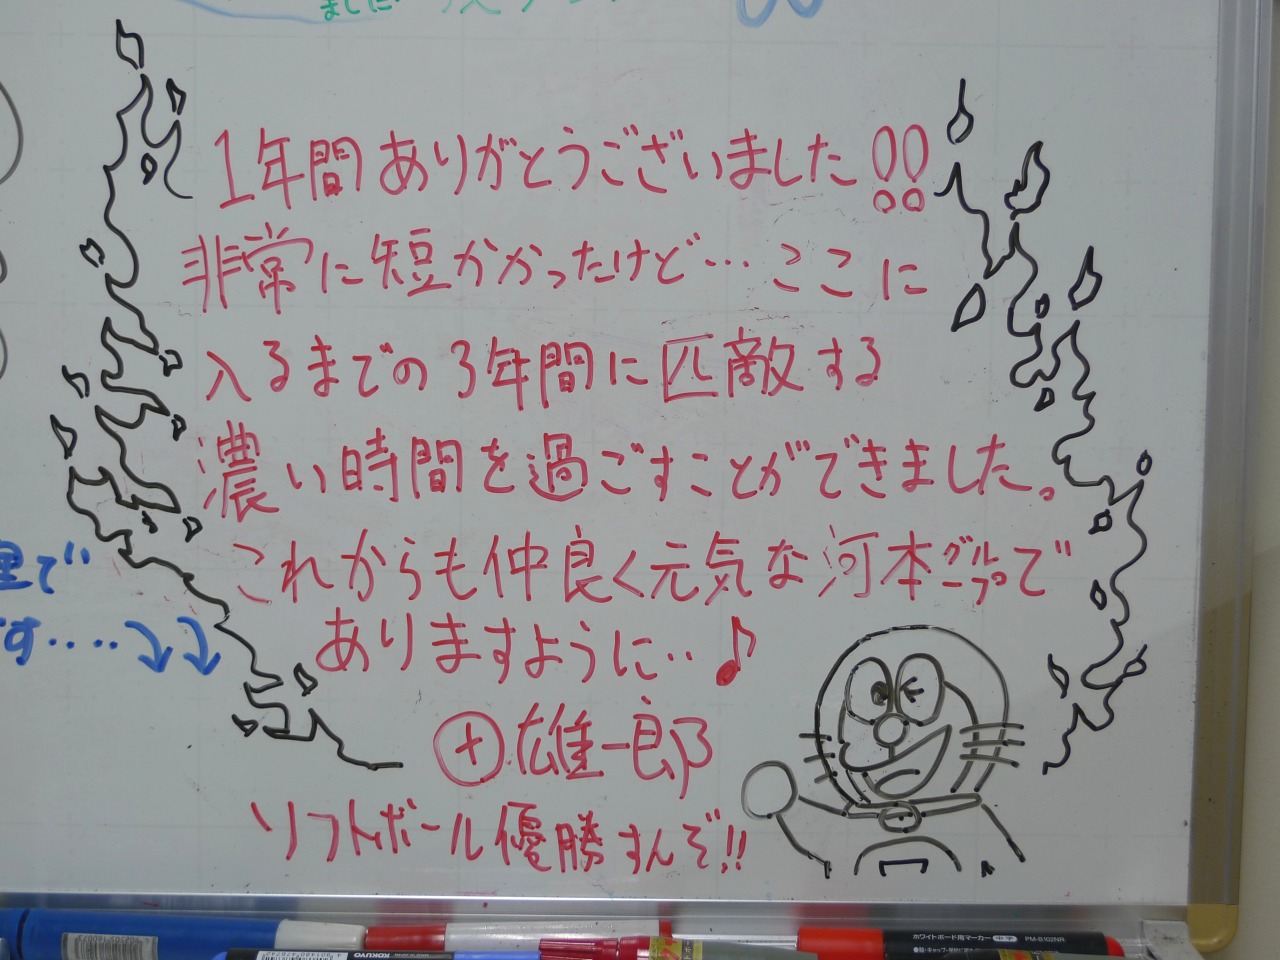 ました
1年間ありがとうございました!!
非常に短かかったけど…ここに
入るまでの3年間に匹敵する
濃い時間を過ごすことができました。
これからも仲良く元気な河本グループで
ありますように…♪
⊕雄一郎
ソフトボール優勝すんぞ!!
で
す....
ホワイトボード用マーカー 中字 PM-B102NR
KOKUYO